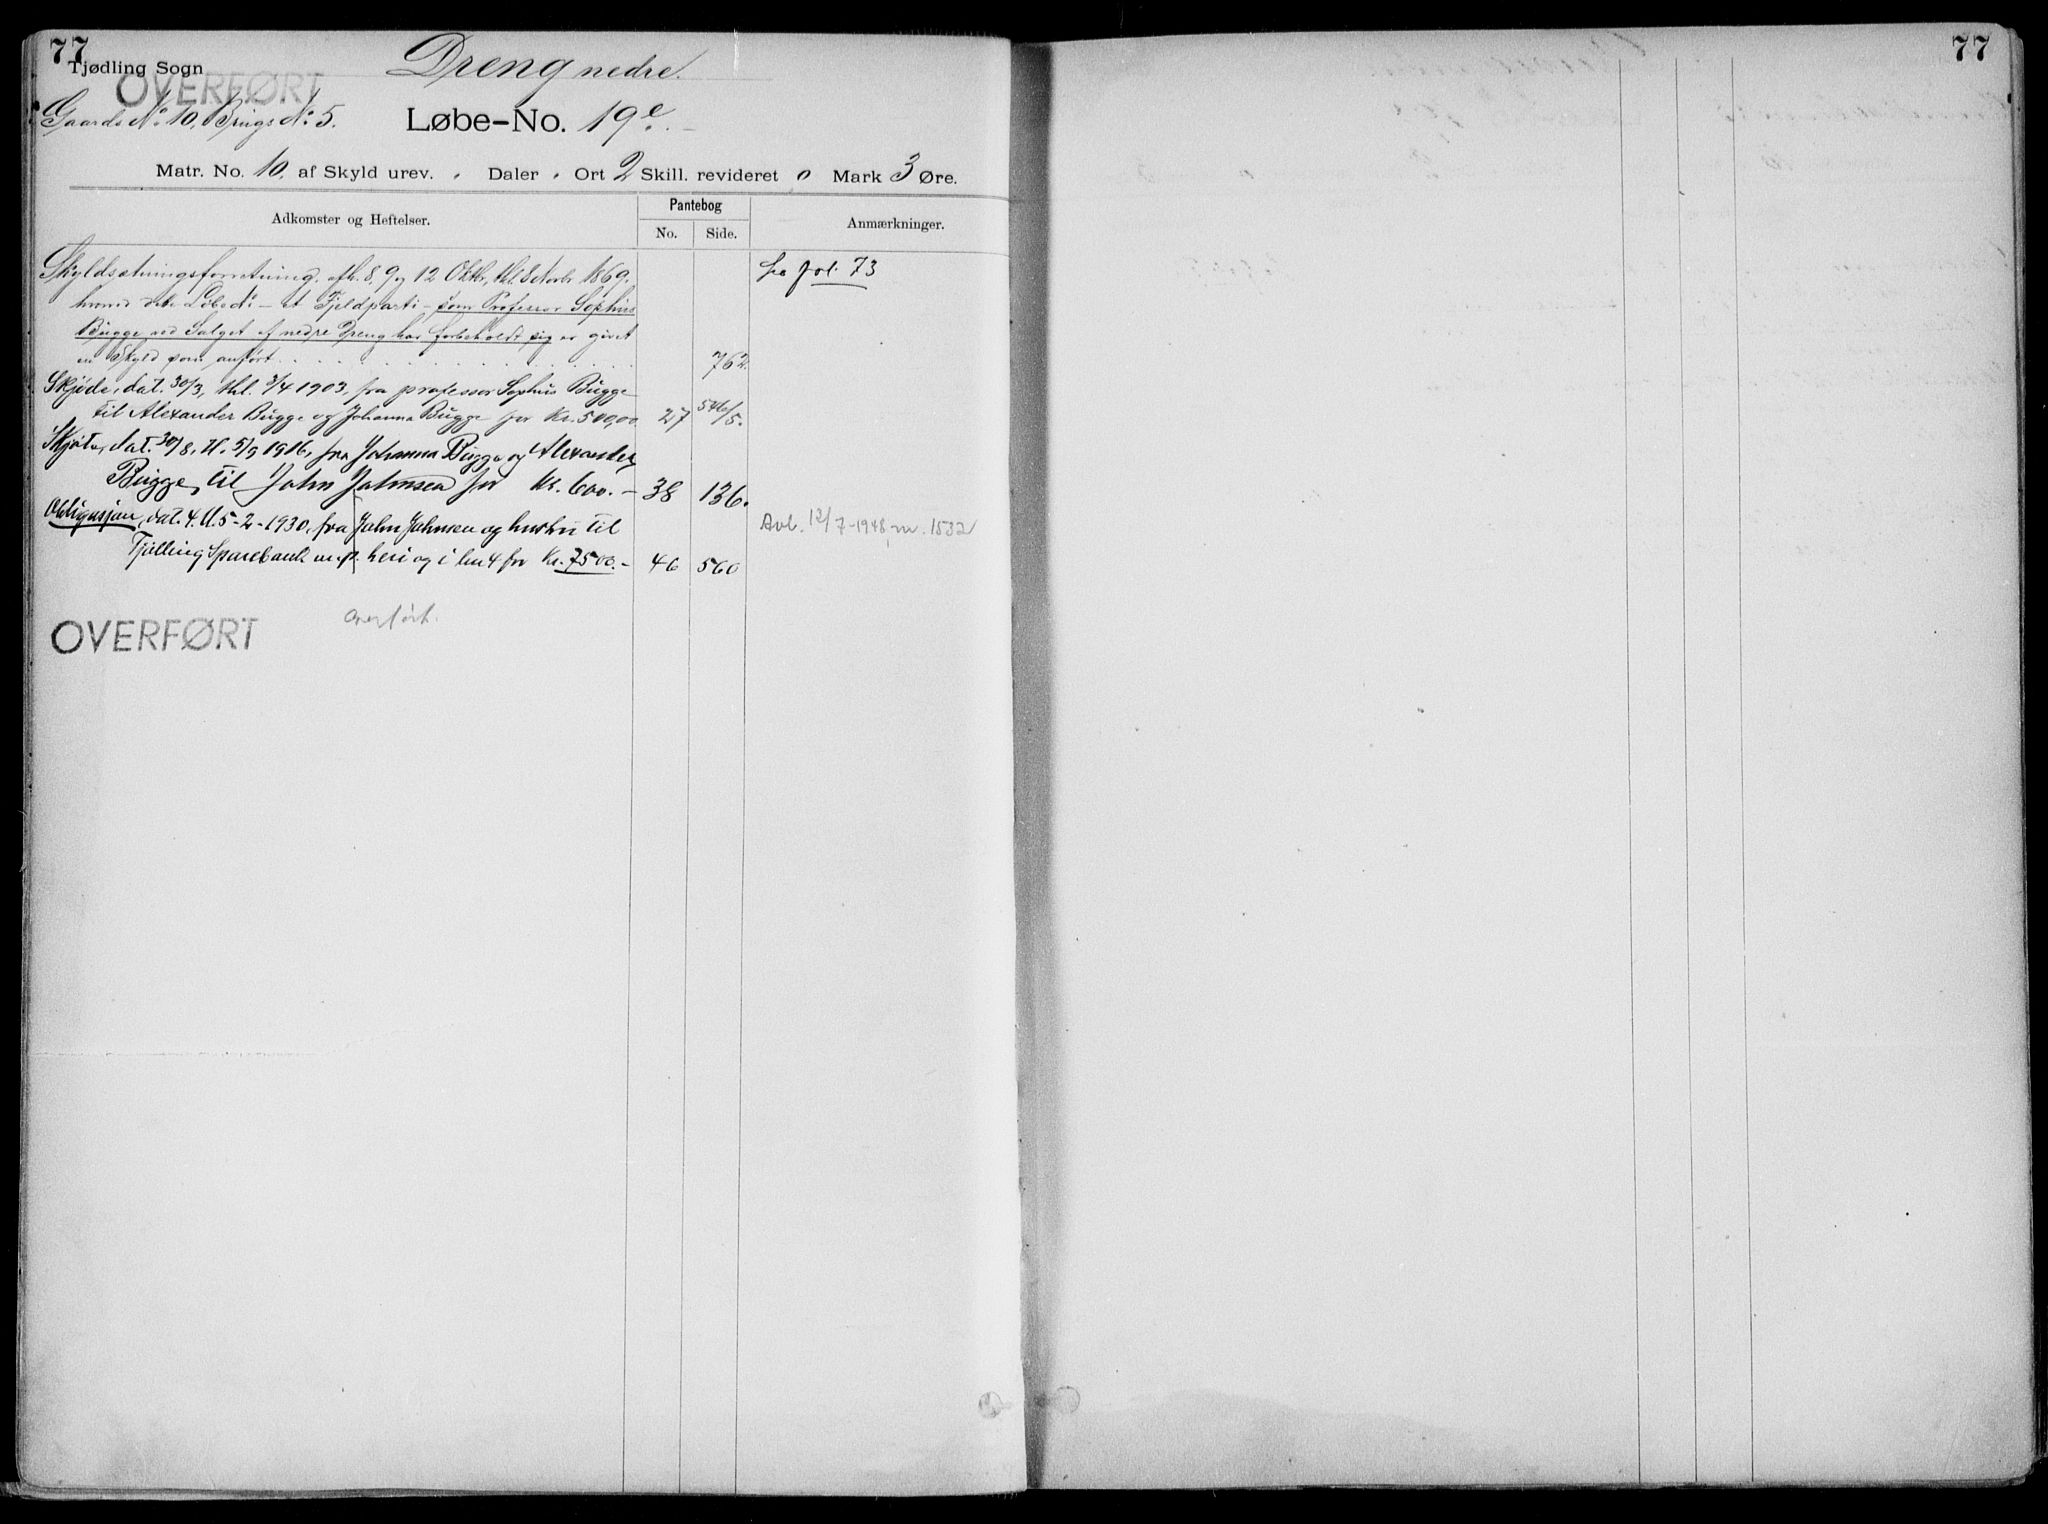 77
77
Tjødling Sogn
Dreng nedre.
OVERFØRT
Gaards No 10, Brugs No 5.
Løbe-No. 19e.
Matr. No. 10. af Skyld urev. " Daler " Ort 2 Skill. revideret 0 Mark 3 Øre.
Adkomster og Heftelser.
Pantebog
No. Side.
Anmærkninger.
Skyldsætningsforretning, afh. 8, 9 og 12 Oktbr, thl. 8 Novbr 1869. fra fol. 73
hvorved dette Løbe No – et Fjeldparti – som Professor Sophus
Bugge ved Salget af nedre Dreng har forbeholdt sig er givet
en Skyld som anført . . . 762.
Skjøde, dat. 30/3, thl. 3/4 1903, fra professor Sophus Bugge
til Alexander Bugge og Johanna Bugge for Kr. 500,00. 27 546/5.
Skjöte, dat. 30/8, tl. 5/9 1916, fra Johanna Bugge og Alexander
Bugge, til John Johnsen for Kr. 600.– 38 136.
Obligasjon, dat. 4. tl. 5-2-1930, fra John Johnsen og hustru til Avl. 12/7-1948, nr. 1532
Tjølling Sparebank m. p. heri og i bnr 4 for Kr. 7500.– 46 560
Overført.
OVERFØRT